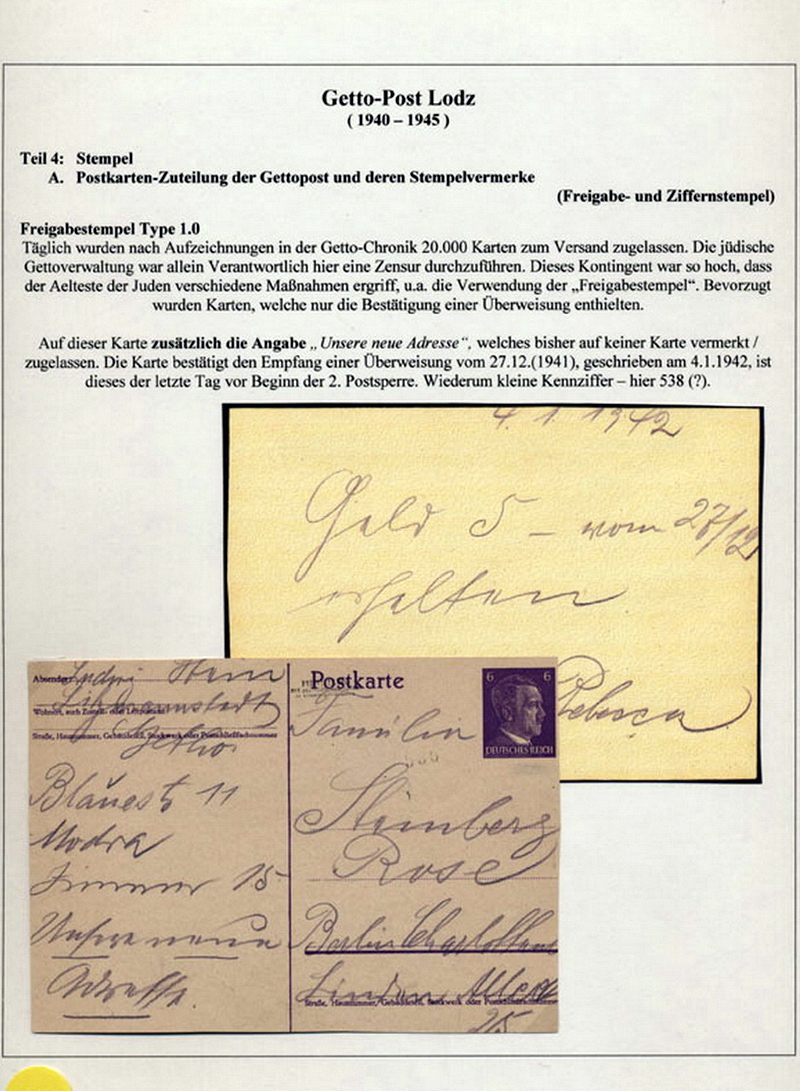 Getto-Post Lodz
( 1940 – 1945 )
Teil 4: Stempel
A. Postkarten-Zuteilung der Gettopost und deren Stempelvermerke
(Freigabe- und Ziffernstempel)
Freigabestempel Type 1.0
Täglich wurden nach Aufzeichnungen in der Getto-Chronik 20.000 Karten zum Versand zugelassen. Die jüdische
Gettoverwaltung war allein Verantwortlich hier eine Zensur durchzuführen. Dieses Kontingent war so hoch, dass
der Aelteste der Juden verschiedene Maßnahmen ergriff, u.a. die Verwendung der „Freigabestempel“. Bevorzugt
wurden Karten, welche nur die Bestätigung einer Überweisung enthielten.
Auf dieser Karte zusätzlich die Angabe „Unsere neue Adresse“, welches bisher auf keiner Karte vermerkt /
zugelassen. Die Karte bestätigt den Empfang einer Überweisung vom 27.12.(1941), geschrieben am 4.1.1942, ist
dieses der letzte Tag vor Beginn der 2. Postsperre. Wiederum kleine Kennziffer – hier 538 (?).
4. 1. 1942
Geld 5 – vom 27/12
erhalten
Rebeca
Absender:
Stein
Litzmannstadt
Getto
Straße, Hausnummer, Gebäudeteil, Stockwerk oder Postschließfachnummer
11
Zimmer 15
Unsere neue
Adresse.
Postkarte
6 6
DEUTSCHES REICH
Familie
Steinberg
Rose
Berlin Charlottenb
Linden Allee
Straße, Hausnummer, Gebäudeteil, Stockwerk oder Postschließfachnummer
25